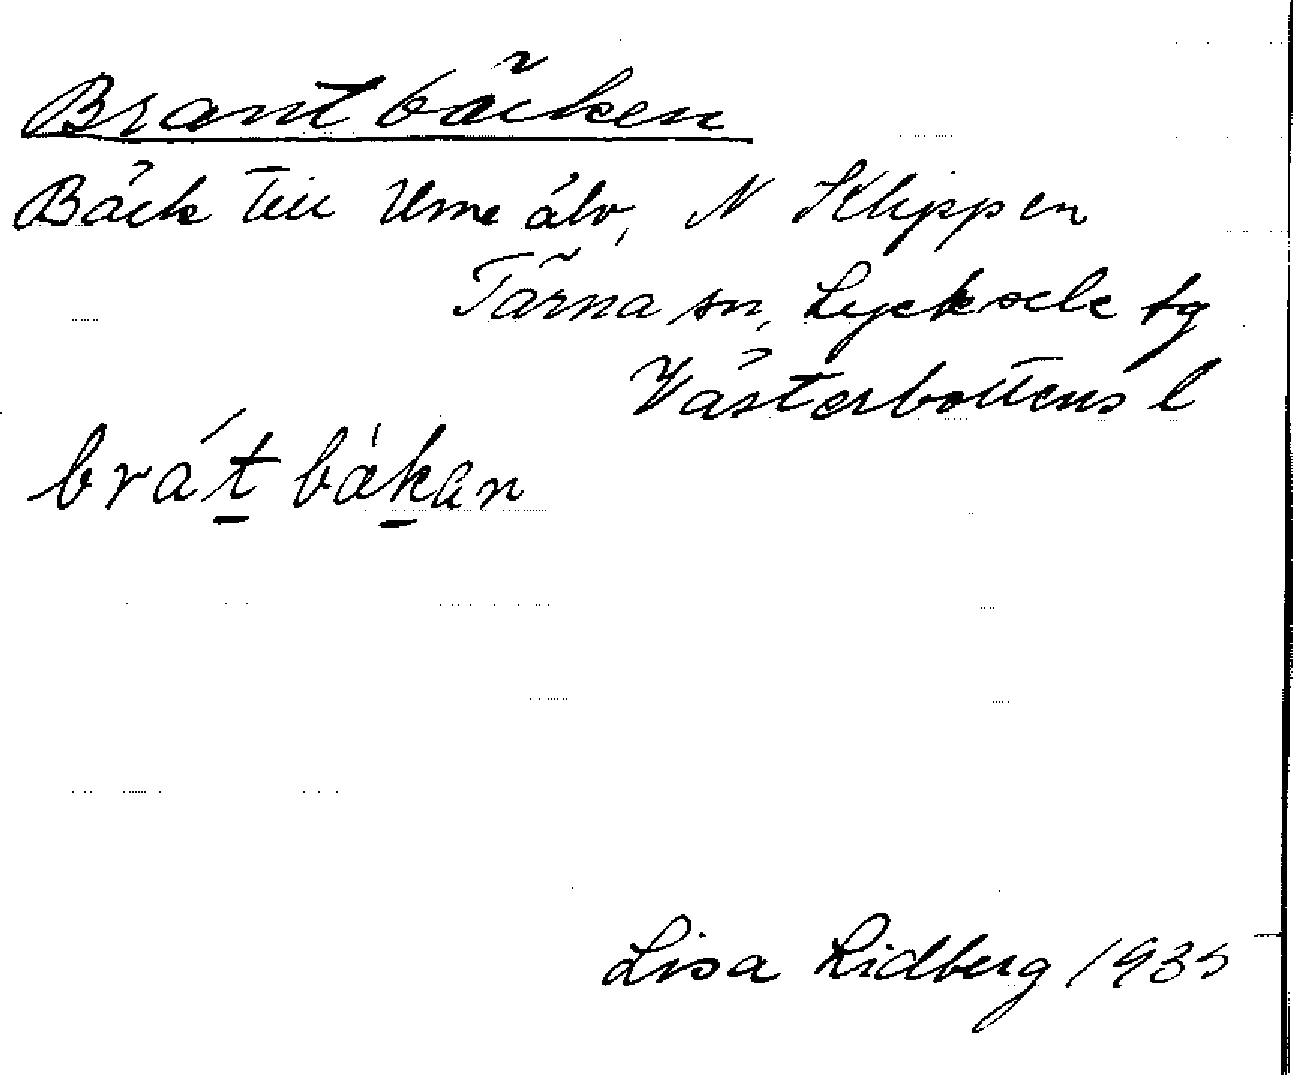 Brantbäcken
Bäck till Ume älv, N Klippen
Tärna sn, Lycksele tg
Västerbottens l
bra´t bákan
Lisa Lidberg 1935